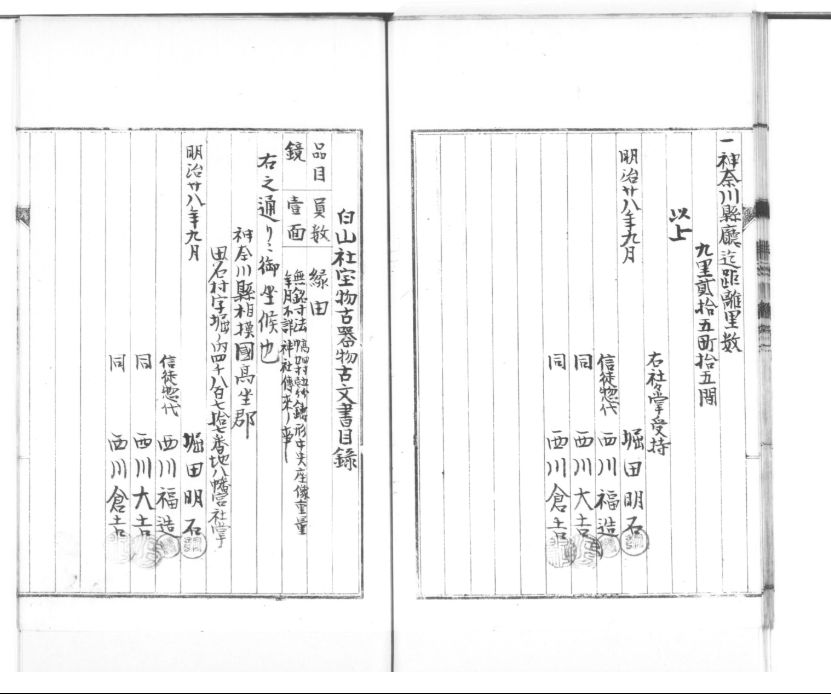 一神奈川縣廳迄距離里数
九里貳拾五町拾五間
以上
明治廿八年九月
右社々掌受持
堀田明石
信徒惣代 西川福造
同 西川大吉
同 西川倉吉
白山社宝物古器物古文書目録
品目 員数 縁由
鏡 壹面
無銘寸法
鋳形中央座像重量
年月不詳神社傳来ノ事
右之通リニ御坐候也
神奈川縣相模國高坐郡
田名村字堀ノ内四千八百七拾七番地八幡宮社掌
堀田明石
明治廿八年九月
信徒惣代 西川福造
同 西川大吉
同 西川倉吉